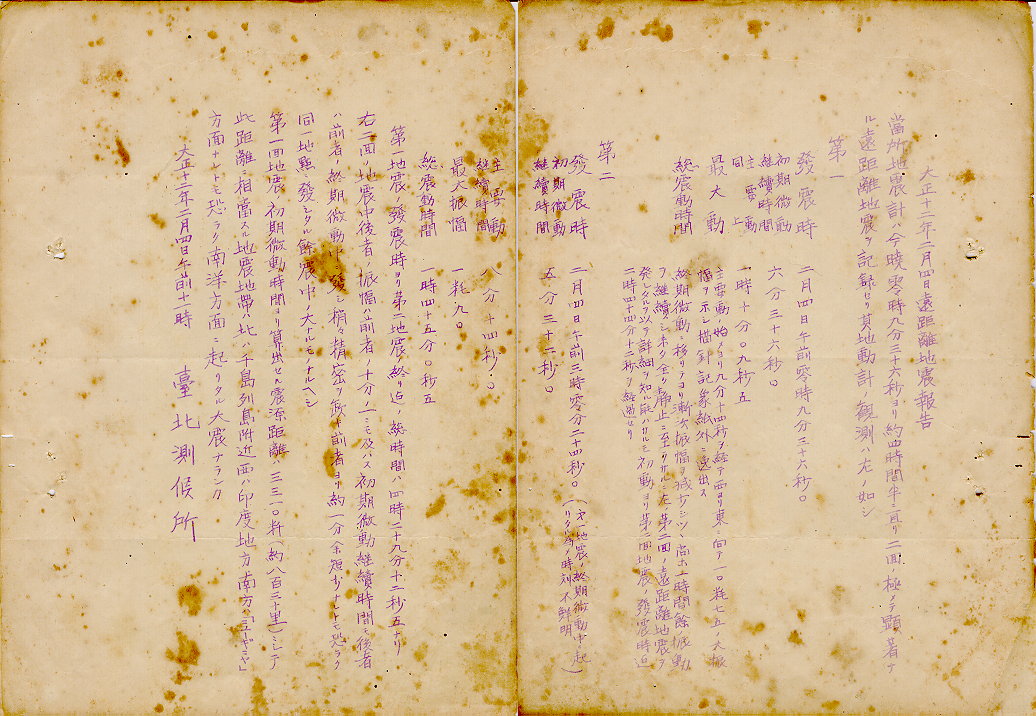 大正十二年二月四日遠距離地震報告
當所地震計ハ今曉零時九分三十六秒ヨリ約四時間半ニ亘リ二回極メテ顯著ナ
ル遠距離地震ヲ記録セリ其地動計ノ觀測ハ左ノ如シ
第一
發震時 二月四日午前零時九分三十六秒〇
初期微動繼續時間 六分三十六秒〇
主要動同上 一時十分〇九秒五
最大動 主要動ノ始メヨリ九分十四秒ヲ經テ西ヨリ東ニ向テ一〇粍七五ノ大振
幅ヲ示シ描針記象紙外ニ逸出ス
總震動時間 終期微動ニ移リテヨリ漸次振幅ヲ減少シツヽ尚二時間餘振動
ヲ繼續シ未タ全ク靜止ニ至ラサルニ又第二回ノ遠距離地震ヲ
發シタルヲ以テ詳細ヲ知ル能ハサルモ初動ヨリ第二回地震ノ發震時迄
二時四十四分十二秒ヲ經過セリ
第二
發震時 二月四日午前三時零分二十四秒〇 (第一地震ノ終期微動中ニ起リタル為メ時刻不鮮明)
初期微動繼續時間 五分三十二秒〇
主要動繼續時間 八分十四秒〇
最大振幅 一粍九〇
總震動時間 一時四十五分〇秒五
第一地震ノ發震時ヨリ第二地震ノ終リ迄ノ總時間ハ四時二十九分十二秒五ナリ
右二回ノ地震中後者ノ振幅ハ前者ノ十分ノ一ニモ及ハス初期微動繼續時間モ後者
ハ前者ノ終期微動中ニ發シ稍々精密ヲ缺キ前者ヨリ約一分余短少ナレトモ恐ラク
同一地點ニ發シタル餘震中ノ大ナルモノナルヘシ
第一回地震ノ初期微動時間ヨリ算出セル震源距離ハ三三一〇粁(約八百三十里)ニシテ
此距離ニ相當スル地震地帶ハ北ハ千島列島附近西ハ印度地方南方ハ「ニューギニヤ」
方面ナレトモ恐ラク南洋方面ニ起リタル大震ナランカ
大正十二年二月四日午前十時 臺北測候所